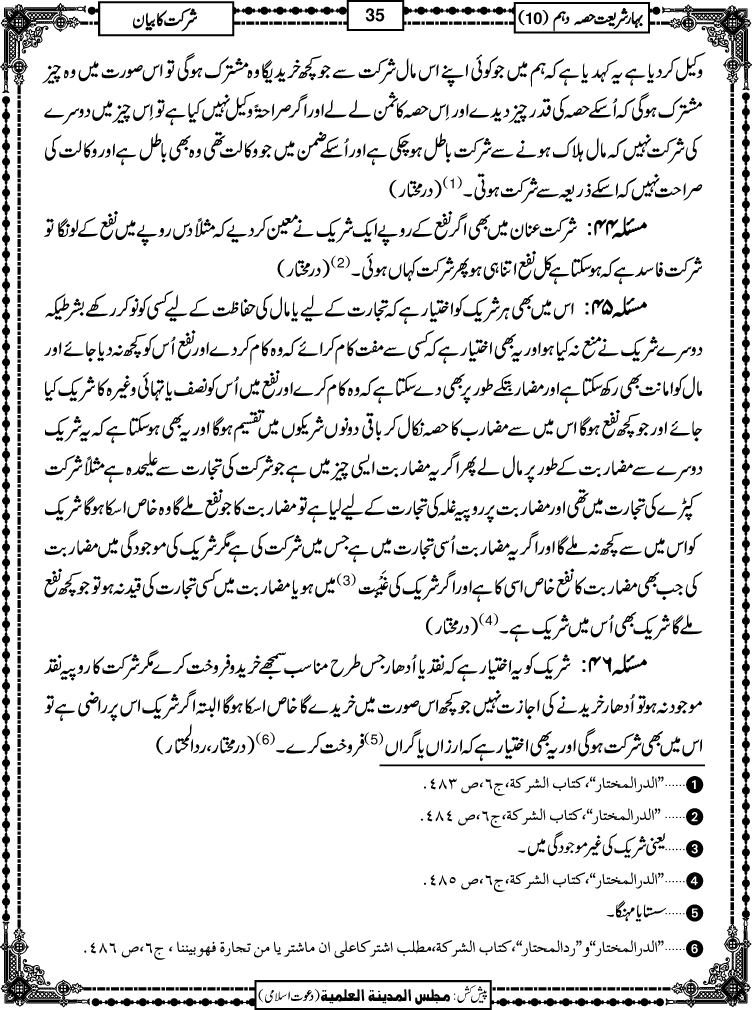 بہارِ شریعت حصہ دہم (10)
35
شرکت کا بیان
وکیل کردیا ہے یہ کہدیا ہے کہ ہم میں جو کوئی اپنے اس مال شرکت سے جو کچھ خریدیگا وہ مشترک ہوگی تو اس صورت میں وہ چیز
مشترک ہوگی کہ اُسکے حصہ کی قدر چیز دیدے اور اِس حصہ کا ثمن لے لے اور اگر صراحۃً وکیل نہیں کیا ہے تو اِس چیز میں دوسرے
کی شرکت نہیں کہ مال ہلاک ہونے سے شرکت باطل ہوچکی ہے اور اُسکے ضمن میں جو وکالت تھی وہ بھی باطل ہے اور وکالت کی
صراحت نہیں کہ اسکے ذریعہ سے شرکت ہوتی۔ (1) (درمختار)
مسئلہ ۴۴: شرکت عنان میں بھی اگر نفع کے روپے ایک شریک نے معین کردیے کہ مثلاً دس روپے میں نفع کے لونگا تو
شرکت فاسد ہے کہ ہوسکتا ہے کل نفع اتنا ہی ہو پھر شرکت کہاں ہوئی۔ (2) (درمختار)
مسئلہ ۴۵: اس میں بھی ہر شریک کو اختیار ہے کہ تجارت کے لیے یا مال کی حفاظت کے لیے کسی کو نوکر رکھے بشرطیکہ
دوسرے شریک نے منع نہ کیا ہو اور یہ بھی اختیار ہے کہ کسی سے مفت کام کرائے کہ وہ کام کردے اور نفع اُس کو کچھ نہ دیا جائے اور
مال کو امانت بھی رکھ سکتا ہے اور مضاربت کے طور پر بھی دے سکتا ہے کہ وہ کام کرے اور نفع میں اُس کو نصف یا تہائی وغیرہ کا شریک کیا
جائے اور جو کچھ نفع ہوگا اس میں سے مضارب کا حصہ نکال کر باقی دونوں شریکوں میں تقسیم ہوگا اور یہ بھی ہوسکتا ہے کہ یہ شریک
دوسرے سے مضاربت کے طور پر مال لے پھر اگر یہ مضاربت ایسی چیز میں ہے جو شرکت کی تجارت سے علیحدہ ہے مثلاً شرکت
کپڑے کی تجارت میں تھی اور مضاربت پر روپیہ غلہ کی تجارت کے لیے لیا ہے تو مضاربت کا جو نفع ملے گا وہ خاص اسکا ہوگا شریک
کو اس میں سے کچھ نہ ملے گا اور اگر یہ مضاربت اُسی تجارت میں ہے جس میں شرکت کی ہے مگر شریک کی موجودگی میں مضاربت
کی جب بھی مضاربت کا نفع خاص اسی کا ہے اور اگر شریک کی غَیبت (3) میں ہو یا مضاربت میں کسی تجارت کی قید نہ ہو تو جو کچھ نفع
ملے گا شریک بھی اُس میں شریک ہے۔ (4) (درمختار)
مسئلہ ۴۶: شریک کو یہ اختیار ہے کہ نقد یا اُدھار جس طرح مناسب سمجھے خرید و فروخت کرے مگر شرکت کا روپیہ نقد
موجود نہ ہو تو اُدھار خریدنے کی اجازت نہیں جو کچھ اس صورت میں خریدے گا خاص اسکا ہوگا البتہ اگر شریک اس پر راضی ہے تو
اس میں بھی شرکت ہوگی اور یہ بھی اختیار ہے کہ ارزاں یا گراں (5) فروخت کرے۔ (6) (درمختار، ردالمحتار)
1 ......"الدرالمختار"، کتاب الشرکة، ج٦، ص ٤٨٣.
2 ......"الدرالمختار"، کتاب الشرکة، ج٦، ص ٤٨٤.
3 ......یعنی شریک کی غیر موجودگی میں۔
4 ......"الدرالمختار"، کتاب الشرکة، ج٦، ص ٤٨٥.
5 ......سستا یا مہنگا۔
6 ......"الدرالمختار" و "ردالمحتار"، کتاب الشرکة، مطلب اشترکا علی ان ماشتریا من تجارة فهوبیننا، ج٦، ص ٤٨٦.
پیش کش: مجلس المدينة العلمية (دعوت اسلامی)